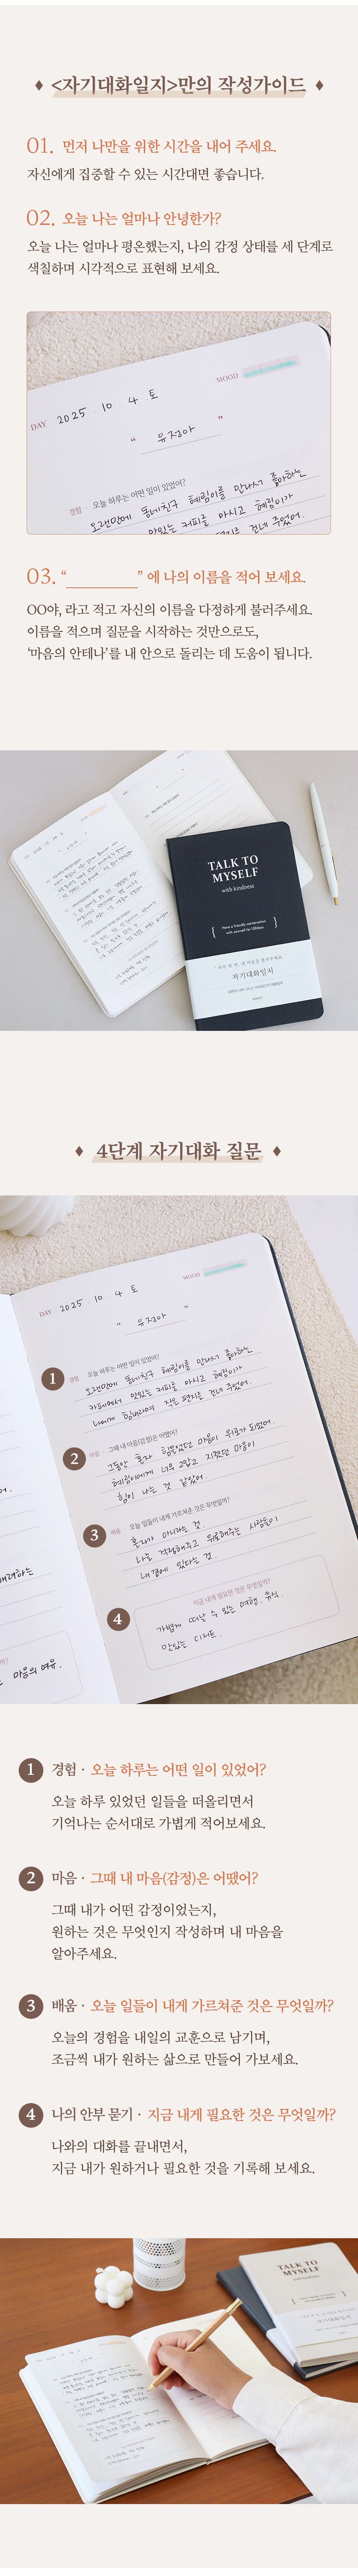 <자기대화일지>만의 작성가이드
01. 먼저 나만을 위한 시간을 내어 주세요.
자신에게 집중할 수 있는 시간대면 좋습니다.
02. 오늘 나는 얼마나 안녕한가?
오늘 나는 얼마나 평온했는지, 나의 감정 상태를 세 단계로
색칠하며 시각적으로 표현해 보세요.
DAY 2025. 10. 4 토 MOOD
“ 유정아 ”
경험 · 오늘 하루는 어떤 일이 있었어?
오랜만에 동네친구 혜림이를 만나서 좋아하는
맛있는 커피를 마시고 혜림이가
편지를 건네 주었어.
03. “ ” 에 나의 이름을 적어 보세요.
OO야, 라고 적고 자신의 이름을 다정하게 불러주세요.
이름을 적으며 질문을 시작하는 것만으로도,
‘마음의 안테나’를 내 안으로 돌리는 데 도움이 됩니다.
TALK TO
MYSELF
with kindness
Have a friendly conversation
with yourself for 100days
자기대화일지
4단계 자기대화 질문
DAY 2025. 10. 4 토 MOOD
“ 유정아 ”
1 경험 · 오늘 하루는 어떤 일이 있었어?
오랜만에 동네친구 혜림이를 만나서 좋아하는
카페에서 맛있는 커피를 마시고 혜림이가
나에게 힘내라며 작은 편지를 건네 주었어.
2 마음 · 그때 내 마음(감정)은 어땠어?
그동안 혼자 힘들었던 마음이 위로가 되었어.
혜림이에게 너무 고맙고 지쳤던 마음이
힘이 나는 것 같았어.
3 배움 · 오늘 일들이 내게 가르쳐준 것은 무엇일까?
혼자가 아니라는 것.
나를 걱정해주고 위로해주는 사람들이
내 곁에 있다는 것.
4 지금 내게 필요한 것은 무엇일까?
가볍게 떠날 수 있는 여행. 휴식.
맛있는 디저트.
마음의 여유.
1 경험 · 오늘 하루는 어떤 일이 있었어?
오늘 하루 있었던 일들을 떠올리면서
기억나는 순서대로 가볍게 적어보세요.
2 마음 · 그때 내 마음(감정)은 어땠어?
그때 내가 어떤 감정이었는지,
원하는 것은 무엇인지 작성하며 내 마음을
알아주세요.
3 배움 · 오늘 일들이 내게 가르쳐준 것은 무엇일까?
오늘의 경험을 내일의 교훈으로 남기며,
조금씩 내가 원하는 삶으로 만들어 가보세요.
4 나의 안부 묻기 · 지금 내게 필요한 것은 무엇일까?
나와의 대화를 끝내면서,
지금 내가 원하거나 필요한 것을 기록해 보세요.
TALK TO
MYSELF
자기대화일지